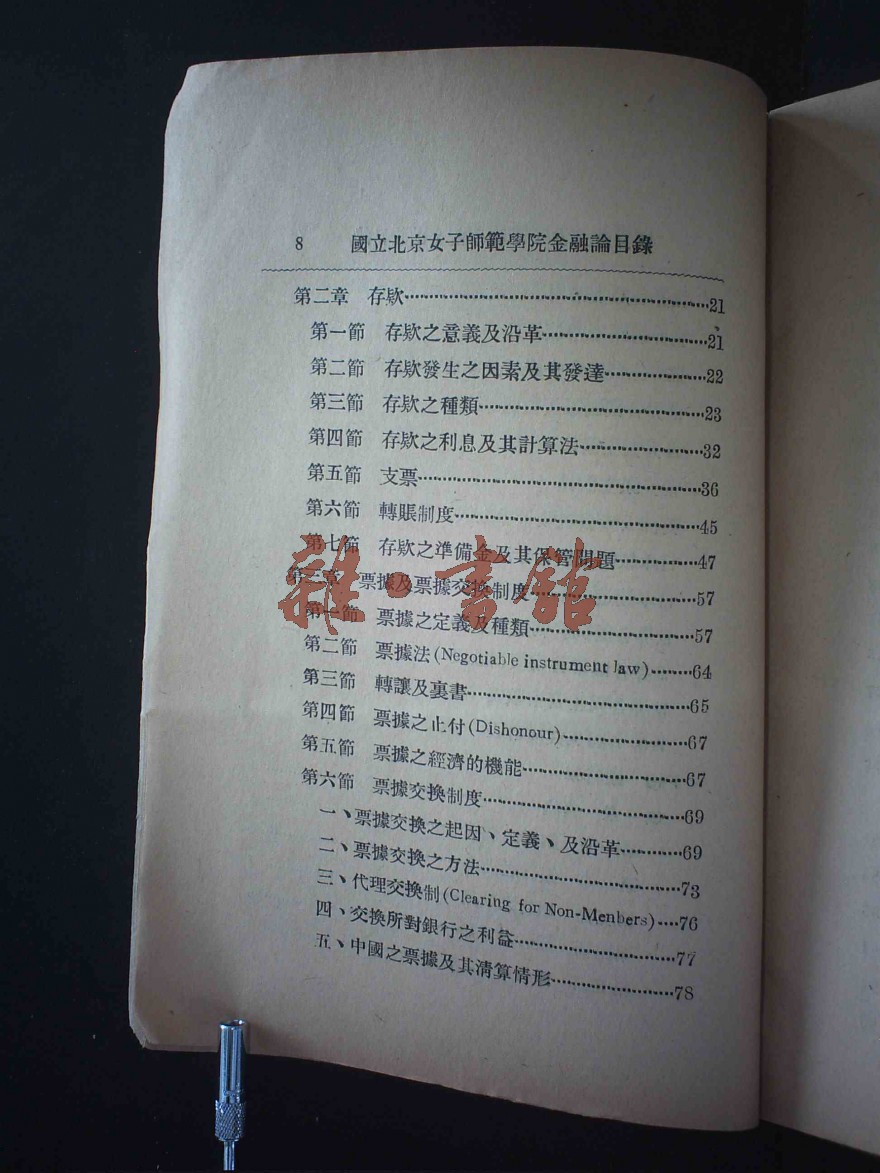 8 國立北京女子師範學院金融論目錄
第二章 存欵……21
第一節 存欵之意義及沿革……21
第二節 存欵發生之因素及其發達……22
第三節 存欵之種類……23
第四節 存欵之利息及其計算法……32
第五節 支票……36
第六節 轉賬制度……45
第七節 存欵之準備金及其保管問題……47
第三章 票據及票據交換制度……57
第一節 票據之定義及種類……57
第二節 票據法(Negotiable instrument law)……64
第三節 轉讓及裏書……65
第四節 票據之止付(Dishonour)……67
第五節 票據之經濟的機能……67
第六節 票據交換制度……69
一、票據交換之起因、定義、及沿革……69
二、票據交換之方法……73
三、代理交換制(Clearing for Non-Menbers)……76
四、交換所對銀行之利益……77
五、中國之票據及其清算情形……78
雜·書舘